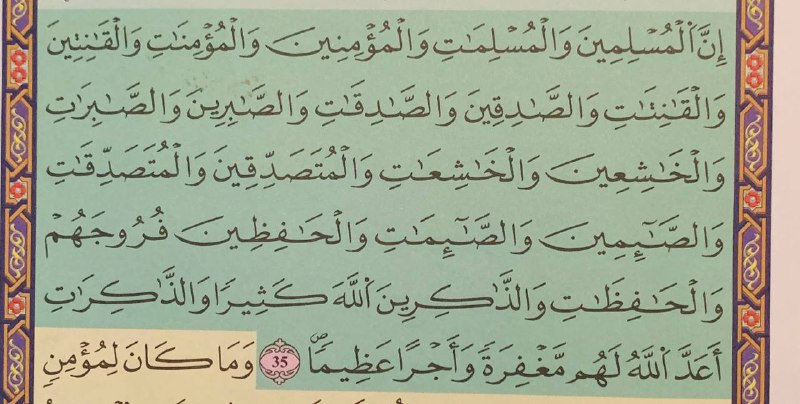 إِنَّ ٱلْمُسْلِمِينَ وَالْمُسْلِمَٰتِ وَالْمُؤْمِنِينَ وَالْمُؤْمِنَٰتِ وَالْقَٰنِتِينَ
وَالْقَٰنِتَٰتِ وَالصَّٰدِقِينَ وَالصَّٰدِقَٰتِ وَالصَّٰبِرِينَ وَالصَّٰبِرَٰتِ
وَالْخَٰشِعِينَ وَالْخَٰشِعَٰتِ وَالْمُتَصَدِّقِينَ وَالْمُتَصَدِّقَٰتِ
وَالصَّٰٓئِمِينَ وَالصَّٰٓئِمَٰتِ وَالْحَٰفِظِينَ فُرُوجَهُمْ
وَالْحَٰفِظَٰتِ وَالذَّٰكِرِينَ ٱللَّهَ كَثِيرًا وَالذَّٰكِرَٰتِ
أَعَدَّ ٱللَّهُ لَهُم مَّغْفِرَةً وَأَجْرًا عَظِيمًا ۖ 35 وَمَا كَانَ لِمُؤْمِنٍ